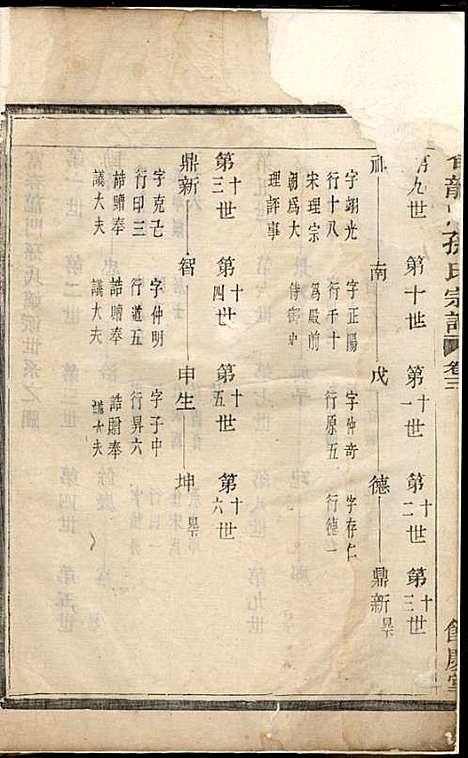 龍門孫氏宗譜 卷三 餘慶堂
第九世 第十世 第十一世 第十二世 第十三世
南 戊 德 鼎新 杲
字翊光
行十八
宋理宗
朝爲大
理評事
字正陽
行千十
爲殿前
侍御史
字仲奇
行原五
字存仁
行德一
第十三世 第十四世 第十五世 第十六世
鼎新 智 申生 坤 杲
字克己
行印三
誥贈奉
議大夫
字仲明
行道五
誥贈奉
議大夫
字子中
行昇六
誥贈奉
議大夫